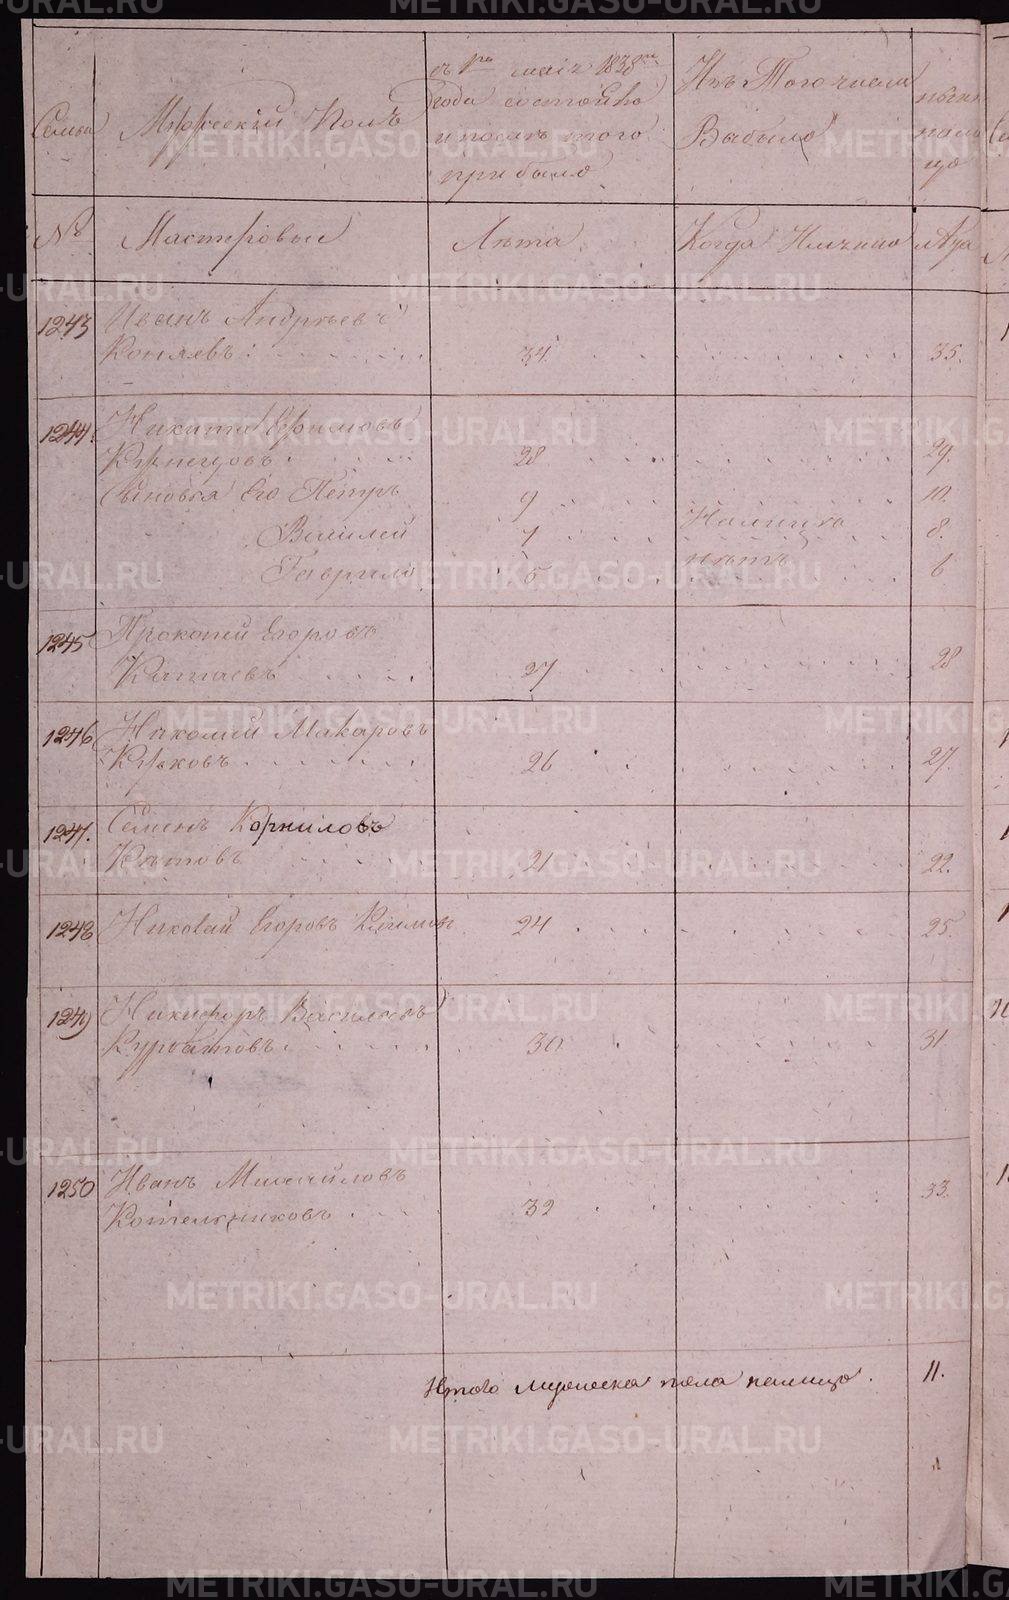 Семьи
Мужеский Полъ
съ 1го маiя 1838го
года состояло
и послѣ того
прибыло
Изъ Того числа
Выбыло
нынѣ
на ли
цо
№
Мастеровые
Лѣта
Когда Имянно
Лѣта
1243
Иванъ Андреевъ
Коняевъ
34
35.
1244.
Никита Ефимовъ
Кузнецовъ
28
29.
Сыновья Его Петръ
9
10.
Василей
7
Налицо
8.
Гаврило
5
нѣтъ
6
1245
Прокопей Егоровъ
Катаевъ
27
28
1246
Николай Макаровъ
26
27.
1247.
Семенъ Корниловъ
21
22.
1248
Николай Егоровъ
24
25.
1249
Никифоръ Васильевъ
Курбатовъ.
30
31
1250
Иванъ Михайловъ
Котельниковъ
32
33.
Итого мужеска пола налицо.
11.
METRIKI.GASO-URAL.RU